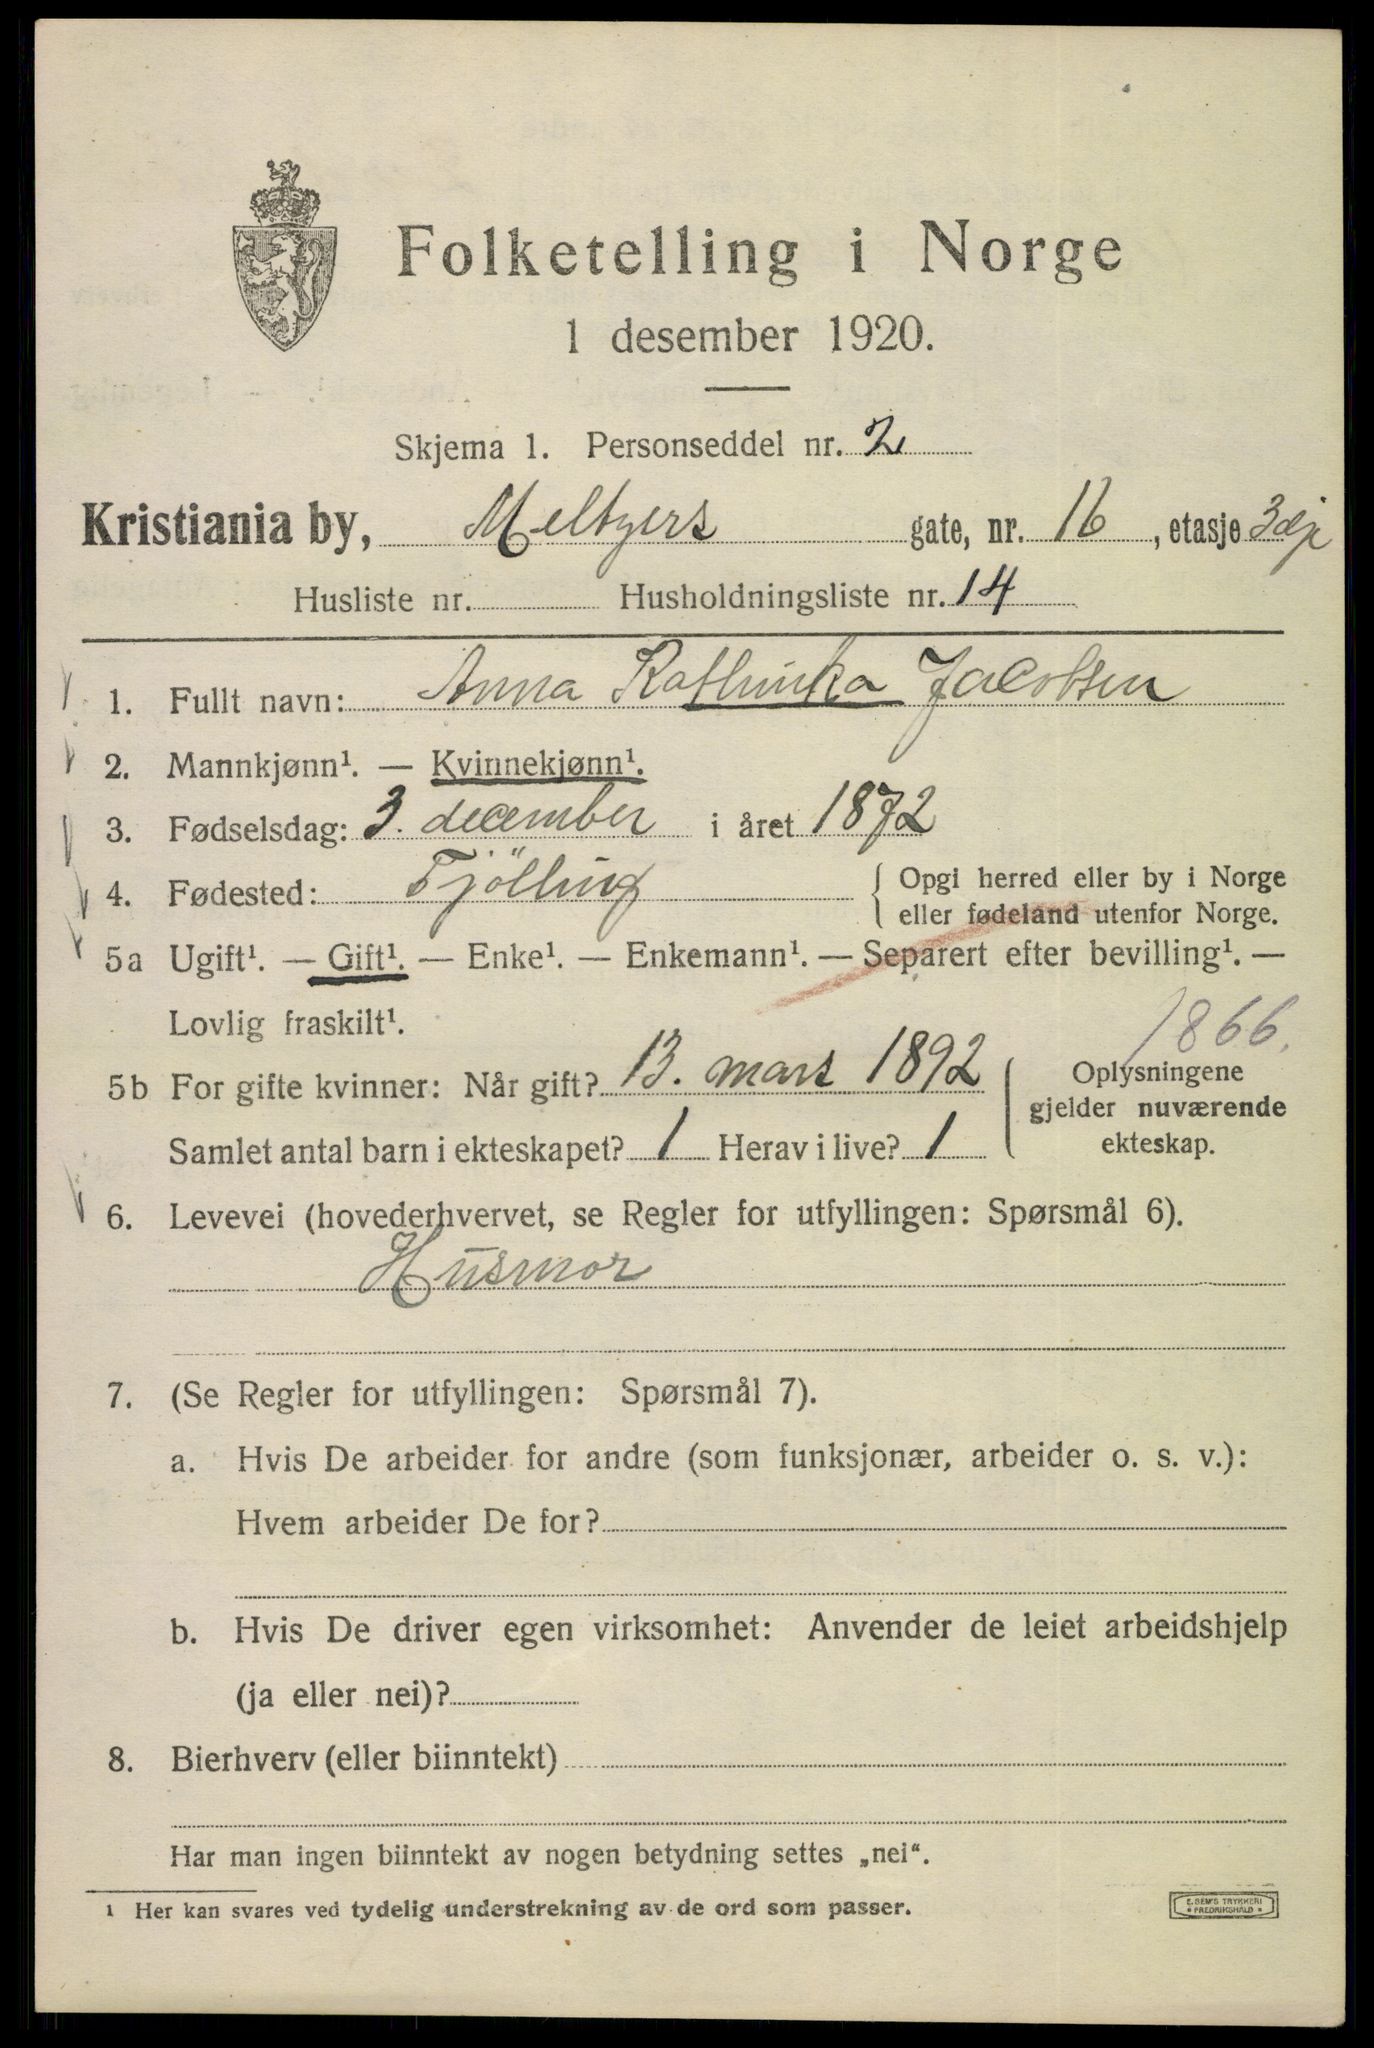 Folketelling i Norge
1 desember 1920.
Skjema 1. Personseddel nr. 2
Kristiania by, Meltzers gate, nr. 16, etasje 3dje
Husliste nr. Husholdningsliste nr. 14
1. Fullt navn: Anna Kathinka Jacobsen
2. Mannkjønn¹. — Kvinnekjønn¹.
3. Fødselsdag: 3. december i året 1872
4. Fødested: Tjölling { Opgi herred eller by i Norge
eller fødeland utenfor Norge.
5a Ugift¹. — Gift¹. — Enke¹. — Enkemann¹. — Separert efter bevilling¹. —
Lovlig fraskilt¹.
1866.
5b For gifte kvinner: Når gift? 13. mars 1892
Samlet antal barn i ekteskapet? 1 Herav i live? 1
Oplysningene
gjelder nuværende
ekteskap.
6. Levevei (hovederhvervet, se Regler for utfyllingen: Spørsmål 6).
Husmor
7. (Se Regler for utfyllingen: Spørsmål 7).
a. Hvis De arbeider for andre (som funksjonær, arbeider o. s. v.):
Hvem arbeider De for?
b. Hvis De driver egen virksomhet: Anvender de leiet arbeidshjelp
(ja eller nei)?
8. Bierhverv (eller biinntekt)
Har man ingen biinntekt av nogen betydning settes „nei“.
1 Her kan svares ved tydelig understrekning av de ord som passer.
E. SEM'S TRYKKERI
* FREDRIKSHALD *